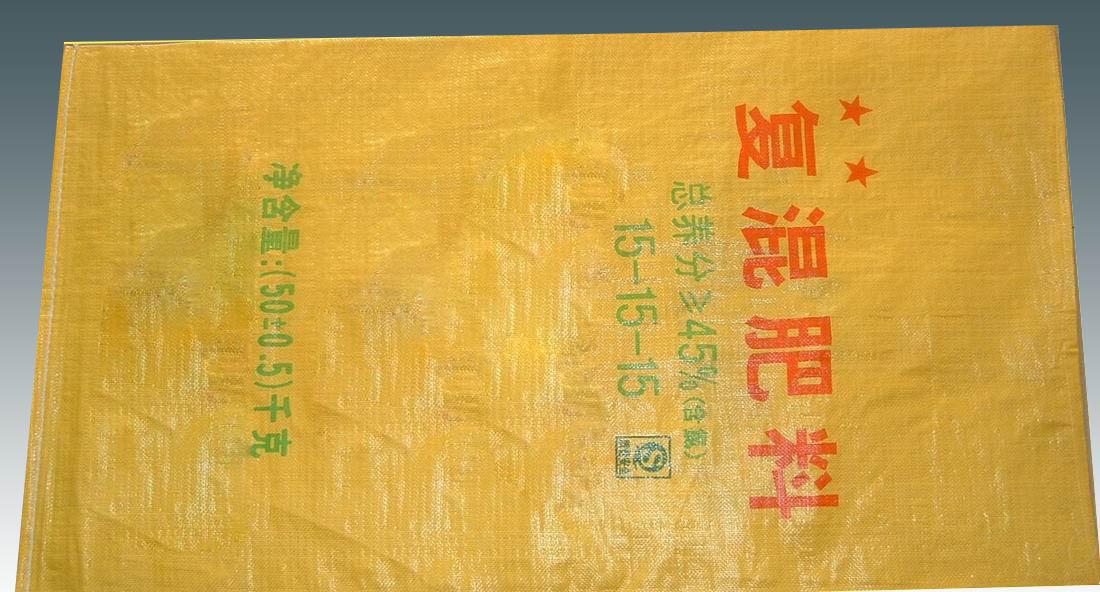 复混肥料
总养分≥45%(含氯)
15-15-15
净含量:(50±0.5)千克